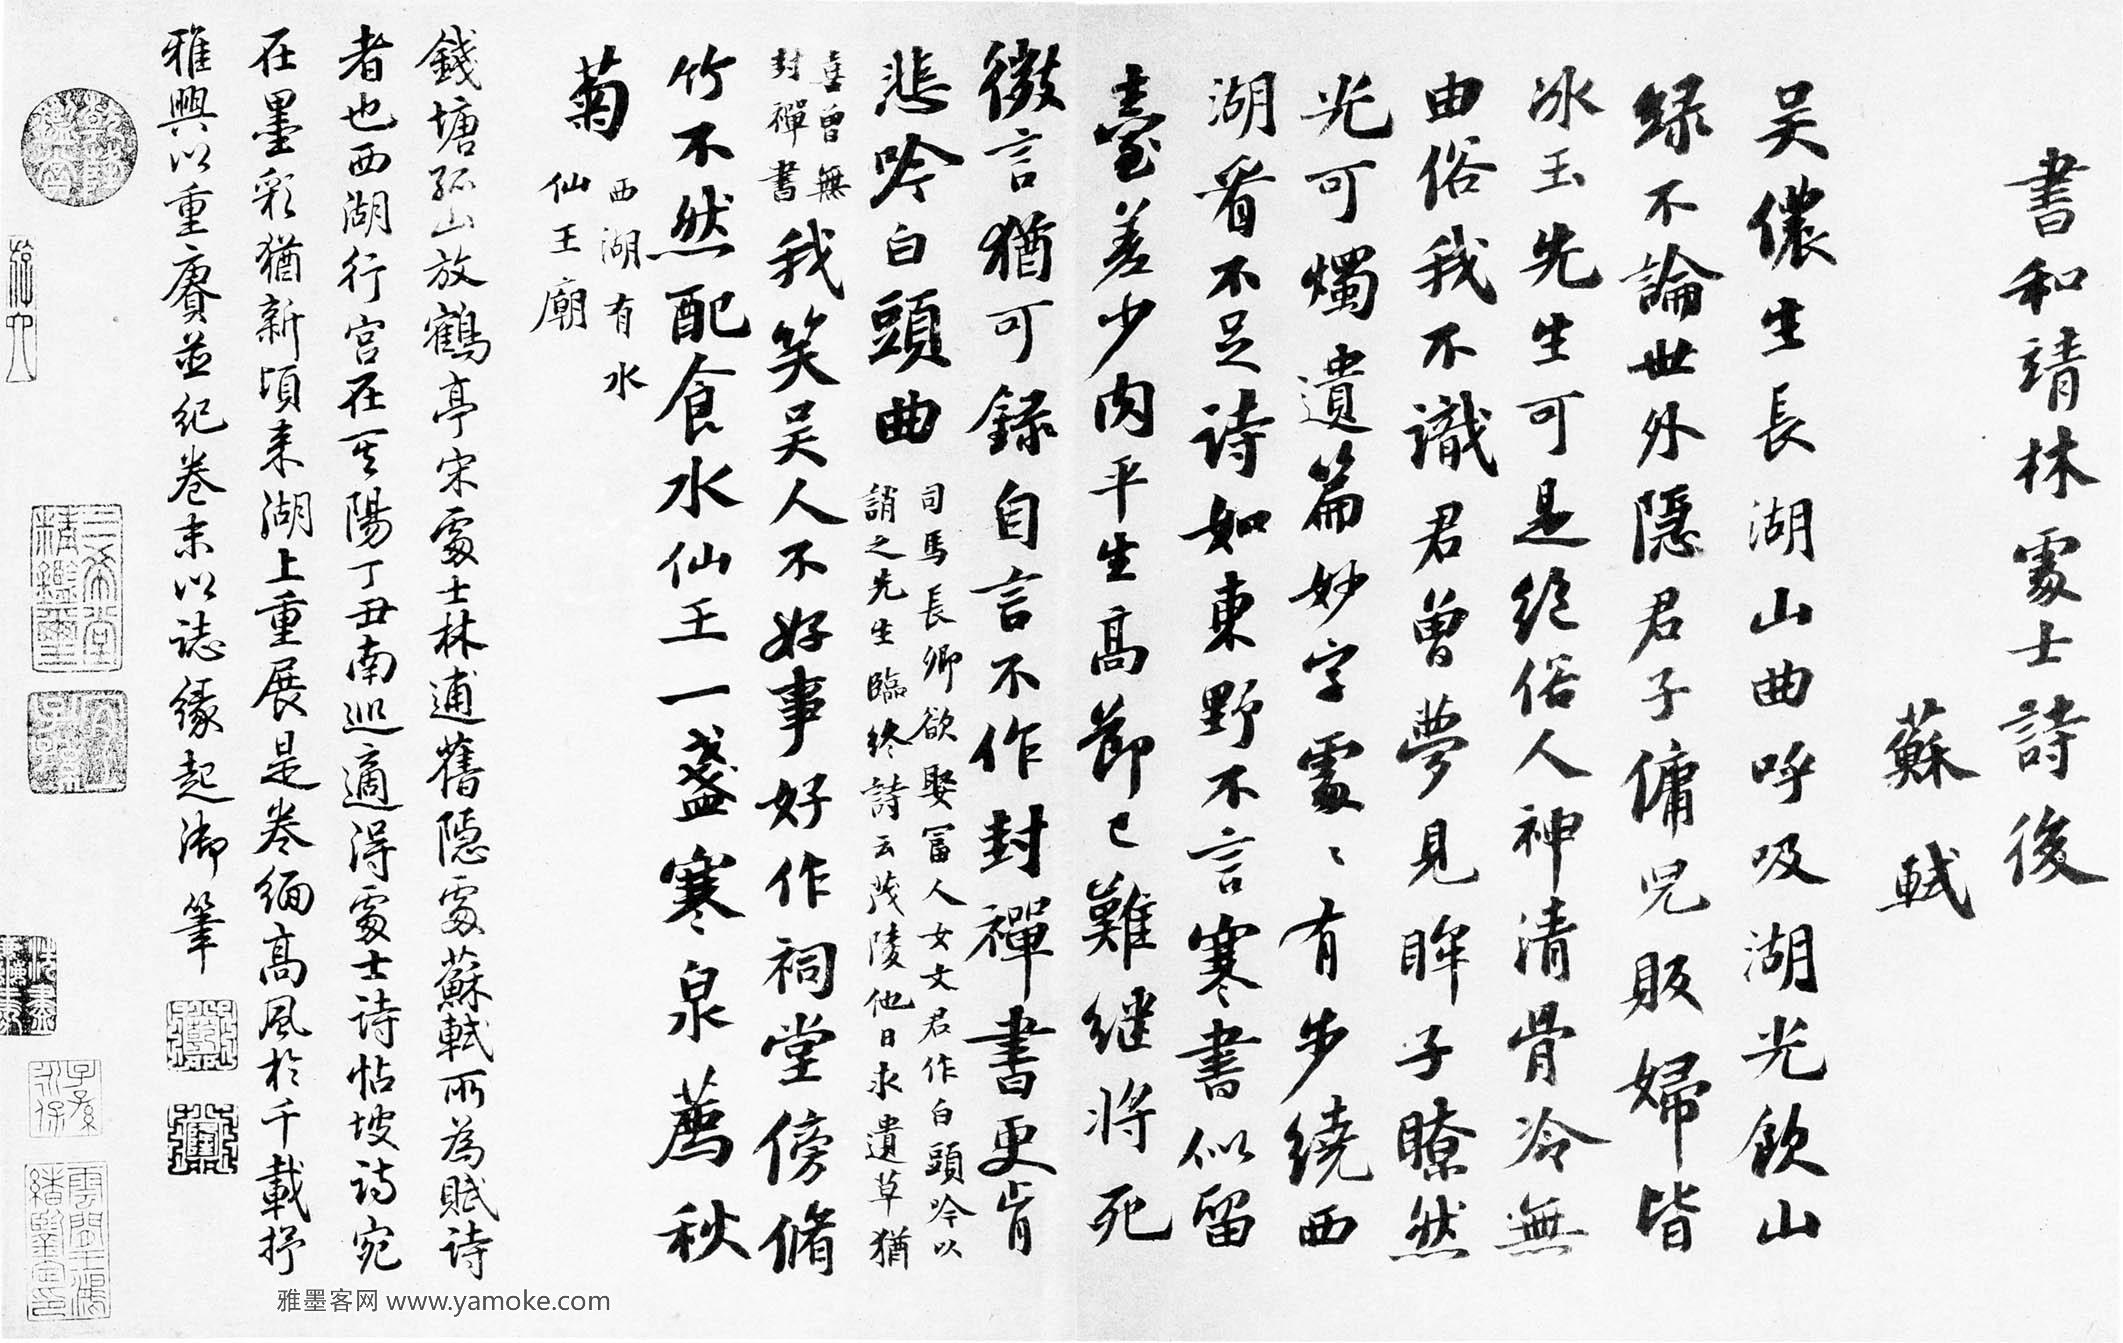 書和靖林處士詩後
蘇軾
吴儂生長湖山曲呼吸湖光飲山
緑不論世外隱君子傭兒販婦皆
冰玉先生可是絕俗人神清骨冷無
由俗我不識君曾夢見眸子瞭然
光可燭遺篇妙字處〻有步繞西
湖看不足詩如東野不言寒書似留
臺差少肉平生高節已難继將死
微言猶可錄自言不作封禪書更肯
悲吟白頭曲
司馬長卿欲娶富人女文君作白頭吟以
誚之先生臨終詩云茂陵他日求遺草猶
喜曾無
封禪書
我笑吴人不好事好作祠堂傍脩
竹不然配食水仙王一盞寒泉薦秋
菊
西湖有水
仙王廟
錢塘孤山放鶴亭宋處士林逋舊隱處蘇軾所為賦詩
者也西湖行宫在其陽丁丑南巡適得處士詩帖坡詩宛
在墨彩猶新頃来湖上重展是卷緬高風於千載抒
雅興以重賡並紀卷末以誌緣起御筆
三希堂
精鑑璽
宜子孫
乾隆
鑑賞
子孫
永保
雅墨客网 www.yamoke.com